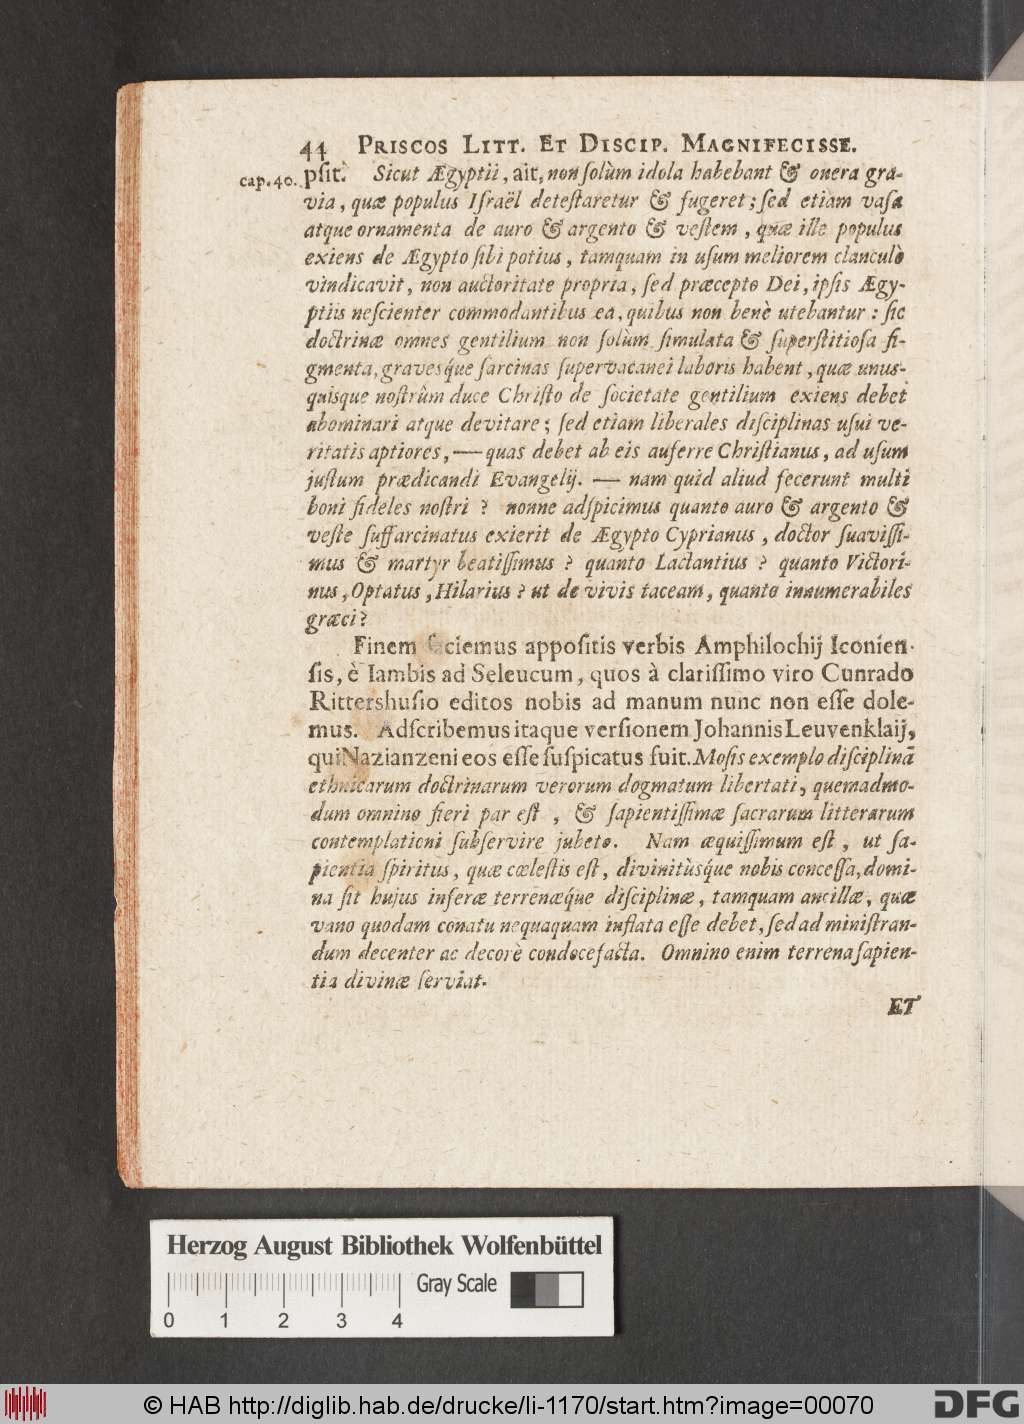 44 PRISCOS LITT. ET DISCIP. MAGNIFECISSE.
cap.40. psit. Sicut Ægyptii, ait, non ſolùm idola habebant & onera gra-
via, quæ populus Iſraël deteſtaretur & fugeret; ſed etiam vaſa
atque ornamenta de auro & argento & veſtem, quæ ille populus
exiens de Ægypto ſibi potius, tamquam in uſum meliorem clanculò
vindicavit, non auctoritate propria, ſed præcepto Dei, ipſis Ægy-
ptiis neſcienter commodantibus ea, quibus non benè utebantur: ſic
doctrinæ omnes gentilium non ſolùm ſimulata & ſuperſtitioſa fi-
gmenta, gravesq́ue ſarcinas ſupervacanei laboris habent, quæ unus-
quisque noſtrûm duce Chriſto de ſocietate gentilium exiens debet
abominari atque devitare; ſed etiam liberales diſciplinas uſui ve-
ritatis aptiores, — quas debet ab eis auferre Chriſtianus, ad uſum
juſtum prædicandi Evangelij. — nam quid aliud fecerunt multi
boni fideles noſtri? nonne adſpicimus quanto auro & argento &
veſte ſuffarcinatus exierit de Ægypto Cyprianus, doctor ſuaviſſi-
mus & martyr beatiſſimus? quanto Lactantius? quanto Victori-
nus, Optatus, Hilarius? ut de vivis taceam, quanto innumerabiles
græci?
Finem faciemus appoſitis verbis Amphilochij Iconien-
ſis, è Iambis ad Seleucum, quos à clariſſimo viro Cunrado
Rittershuſio editos nobis ad manum nunc non eſſe dole-
mus. Adſcribemus itaque verſionem Johannis Leuvenklaij,
qui Nazianzeni eos eſſe ſuſpicatus fuit. Moſis exemplo diſciplinā
ethnicarum doctrinarum verorum dogmatum libertati, quemadmo-
dum omnino fieri par eſt, & ſapientiſſimæ ſacrarum litterarum
contemplationi ſubſervire jubeto. Nam æquiſſimum eſt, ut ſa-
pientia ſpiritus, quæ cœleſtis eſt, divinitùsq́ue nobis conceſſa, domi-
na ſit hujus inferæ terrenæq́ue diſciplinæ, tamquam ancillæ, quæ
vano quodam conatu nequaquam inflata eſſe debet, ſed ad miniſtran-
dum decenter ac decorè condocefacta. Omnino enim terrena ſapien-
tia divinæ ſerviat.
ET
Herzog August Bibliothek Wolfenbüttel
Gray Scale
0 1 2 3 4
© HAB http://diglib.hab.de/drucke/li-1170/start.htm?image=00070
DFG